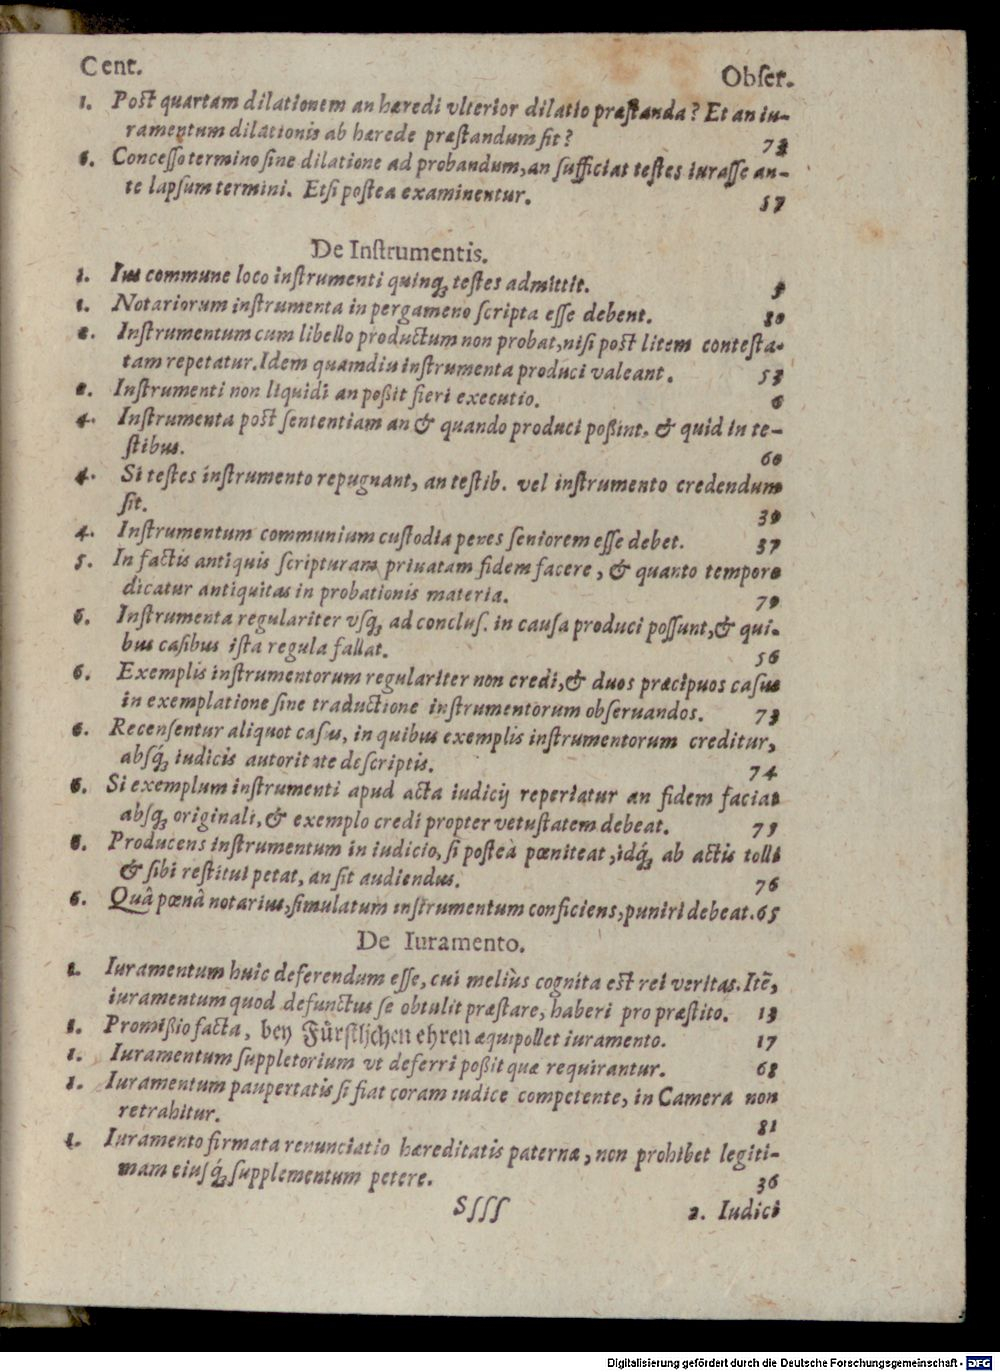 Cent. Obſer.
1. Poſt quartam dilationem an hæredi vlterior dilatio præſtanda? Et an iu-
ramentum dilationis ab hærede præſtandum ſit? 73
6. Conceſſo termino ſine dilatione ad probandum, an ſufficiat teſtes iuraſſe an-
te lapſum termini. Etſi poſtea examinentur. 57
De Inſtrumentis.
1. Ius commune loco inſtrumenti quinq; teſtes admittit. 9
1. Notariorum inſtrumenta in pergameno ſcripta eſſe debent. 80
2. Inſtrumentum cum libello productum non probat, niſi poſt litem conteſta-
tam repetatur. Idem quamdiu inſtrumenta produci valeant. 53
2. Inſtrumenti non liquidi an poßit fieri executio. 6
4. Inſtrumenta poſt ſententiam an & quando produci poßint, & quid in te-
ſtibus. 60
4. Si teſtes inſtrumento repugnant, an teſtib. vel inſtrumento credendum
ſit. 39
4. Inſtrumentum communium cuſtodia penes ſeniorem eſſe debet. 37
5. In factis antiquis ſcripturam priuatam fidem facere, & quanto tempore
dicatur antiquitas in probationis materia. 70
6. Inſtrumenta regulariter vſq; ad concluſ. in cauſa produci poſſunt, & qui-
bus caſibus iſta regula fallat. 56
6. Exemplis inſtrumentorum regulariter non credi, & duos præcipuos caſus
in exemplatione ſine traductione inſtrumentorum obſeruandos. 73
6. Recenſentur aliquot caſus, in quibus exemplis inſtrumentorum creditur,
abſq́; iudicis autoritate deſcriptis. 74
6. Si exemplum inſtrumenti apud acta iudicij reperiatur an fidem faciat
abſq; originali, & exemplo credi propter vetuſtatem debeat. 75
6. Producens inſtrumentum in iudicio, ſi poſteà pœniteat, idq́; ab actis tolli
& ſibi reſtitui petat, an ſit audiendus. 76
6. Quâ pœnâ notarius, ſimulatum inſtrumentum conficiens, puniri debeat. 65
De Iuramento.
1. Iuramentum huic deferendum eſſe, cui meliùs cognita eſt rei veritas. Itē,
iuramentum quod defunctus ſe obtulit præſtare, haberi pro præſtito. 13
1. Promißio facta, bey Fürſtlichen ehren æquipollet iuramento. 17
1. Iuramentum ſuppletorium vt deferri poßit quæ requirantur. 68
1. Iuramentum paupertatis ſi fiat coram iudice competente, in Camera non
retrahitur. 81
1. Iuramento firmata renunciatio hæreditatis paternæ, non prohibet legiti-
mam eiuſq́; ſupplementum petere. 36
Sſſſ 2. Iudici
Digitalisierung gefördert durch die Deutsche Forschungsgemeinschaft - DFG